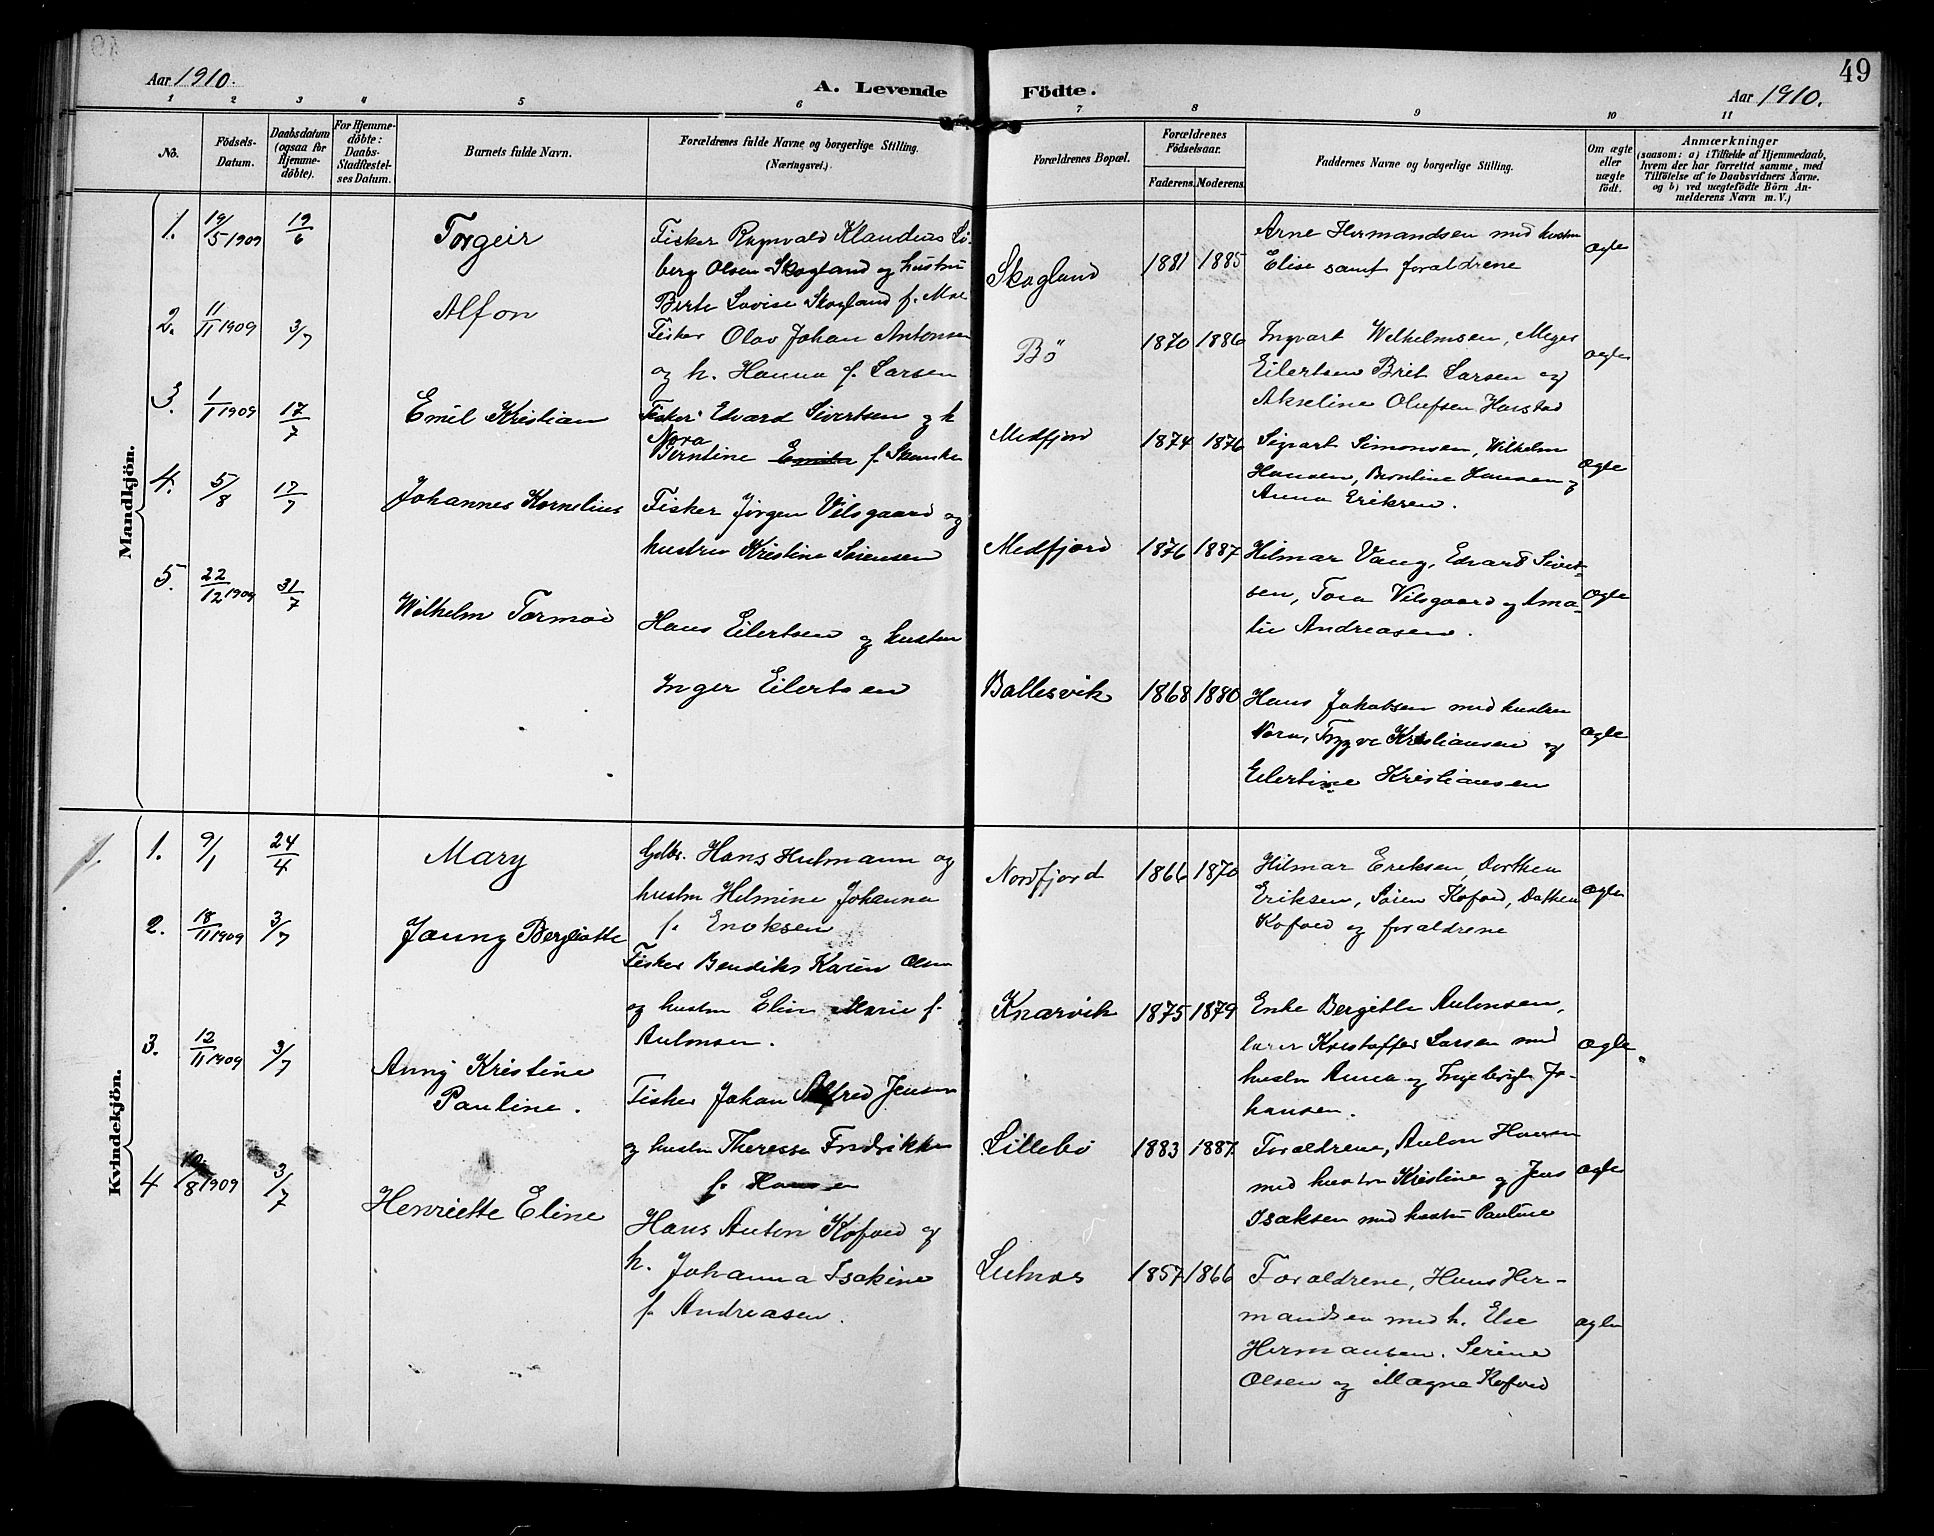 Aar 1910.
A. Levende Födte.
Aar 1910.
49
1 2 3 4 5 6 7 8 9 10 11
No.
Födsels-Datum.
Daabsdatum (ogsaa for Hjemme-döbte).
For Hjemme-döbte: Daabs-Stadfæstel-ses Datum.
Barnets fulde Navn.
Forældrenes fulde Navne og borgerlige Stilling. (Næringsvei.)
Forældrenes Bopæl.
Forældrenes Födselsaar.
Faderens. Moderens.
Faddernes Navne og borgerlige Stilling.
Om ægte eller uægte födt.
Anmærkninger
(saasom: a) i Tilfælde af Hjemmedaab, hvem der har forrettet samme, med Tilföielse af to Daabsvidners Navne. og b) ved uægtefödte Börn An-melderens Navn m. V.)
Mandkjön.
1. 19/5 1909 19/6 Torgeir
Fisker Ragnvald Klaudius
berg Olsen Skogland og hustru
Birte Lovise Skogland f. Moe
Skogland 1881 1885
Arne Hermandsen med hustru
Elise samt forældrene
ægte
2. 11/11 1909 3/7 Alfon
Fisker Olav Johan Antonsen
og h. Hanna f. Larsen
Bö 1870 1886
Ingvart Wilhelmsen, Meyer
Eilertsen Brit Larsen og
Akseline Olufsen Harstad
ægte
3. 1/1 1909 17/7 Emil Kristian
Fisker Edvard Sivertsen og h
Nora
Berntine Emilie f. Skanke
Medfjord 1874 1876
Sigvart Simonsen, Wilhelm
Hansen, Berntine Hansen og
Anna Eriksen.
ægte
4. 5/8 17/7 Johannes Kornelius
Fisker Jörgen Vilsgaard og
hustru Kristine Sörensen
Medfjord 1876 1887
Hilmar Vang, Edvard Sivert-
sen, Tora Vilsgaard og Ama-
lie Andreasen.
ægte
5. 22/12 1909 31/7 Wilhelm Tormod
Hans Eilertsen og hustru
Inger Eilertsen
Ballesvik 1868 1880
Hans Jakobsen med hustru
Nora, Trygve Kristiansen og
Eilertine Kristiansen
ægte
Kvindekjön.
1. 9/1 24/4 Mary
Gdbr. Hans Hutmann og
hustru Helmine Johanna
f. Enoksen
Nordfjord 1866 1870
Hilmar Eriksen, Dorthea
Eriksen, Sören Kofoed, Dorthea
Kofoed og forældrene
ægte
2. 18/11 1909 3/7 Jenny Bergliotte
Fisker Bendiks Olsen
og hustru Elin Marie f.
Antonsen.
Knarvik 1875 1879
Enke Bergitte Antonsen,
lærer Kristoffer Larsen med
hustru Anna og Ingeborg Jo-
hansen.
ægte
3. 12/11 1909 3/7 Anny Kristine
Pauline.
Fisker Johan Alfred Jensen
og hustru Theresse Fredrikke
f. Hansen
Lillebö 1883 1887
Forældrene, Anton Hansen
med hustru Kristine og Jens
Isaksen med hustru Pauline
ægte
4 10/8 1909 3/7 Henriette Eline
Hans Anton Kofoed og
h. Johanna Isakine
f. Andreasen.
Lutnæs 1857 1866
Forældrene, Hans Her-
mandsen med h. Else
Hermansen. Serine
Olsen og Magne Kofoed
ægte